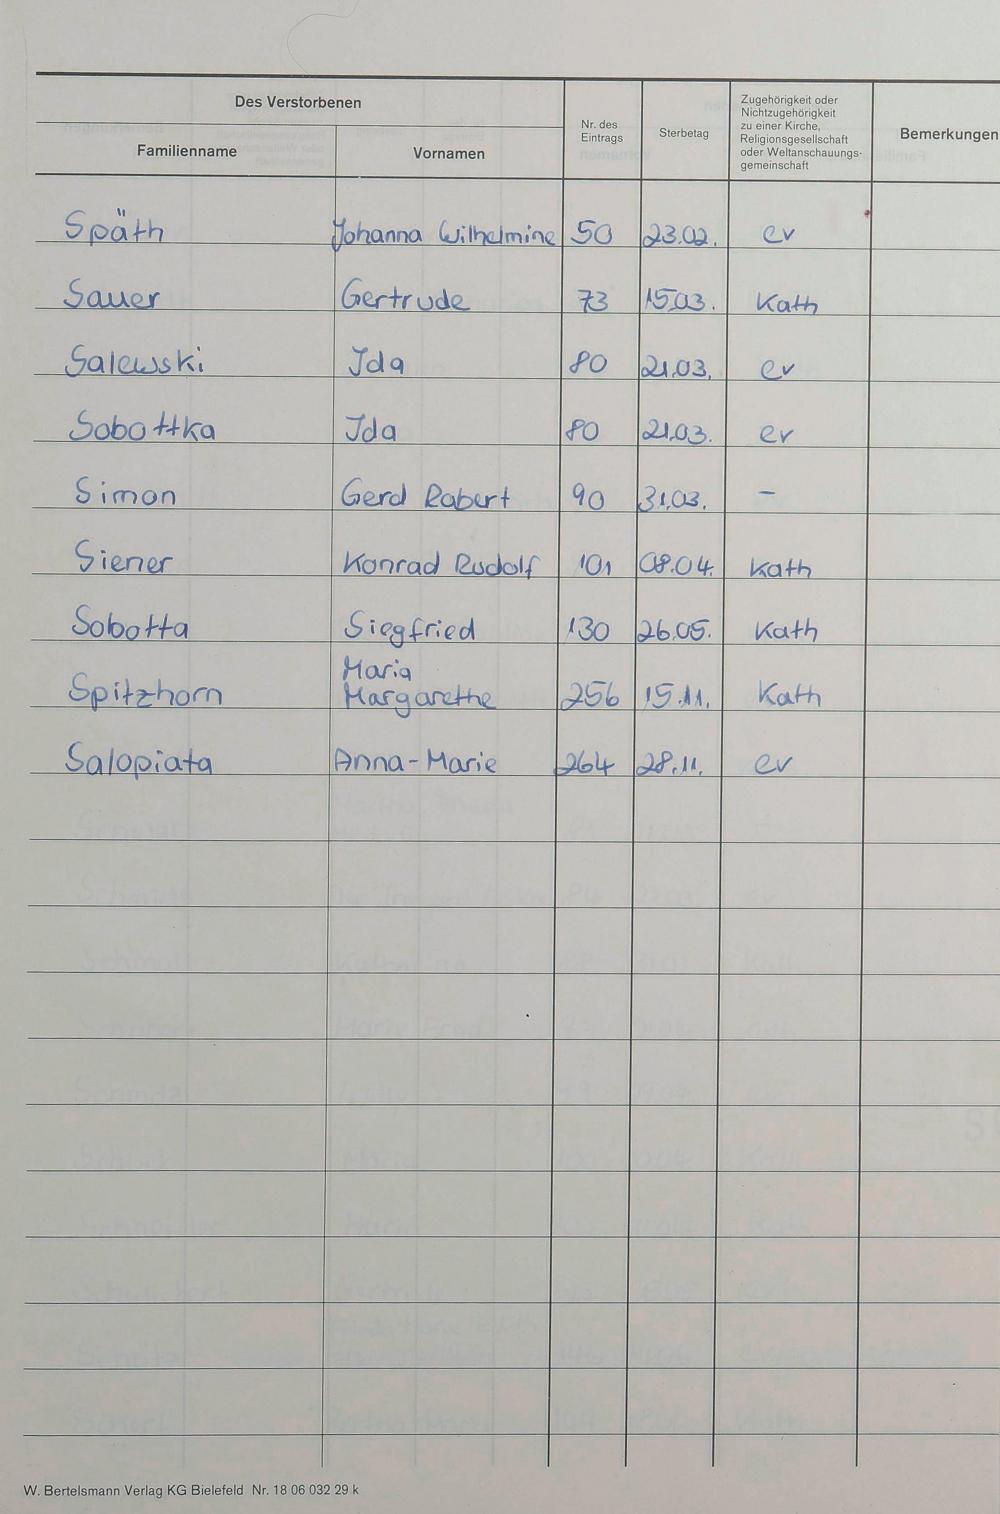 Des Verstorbenen
Familienname
Vornamen
Nr. des
Eintrags
Sterbetag
Zugehörigkeit oder
Nichtzugehörigkeit
zu einer Kirche,
Religionsgesellschaft
oder Weltanschauungs-
gemeinschaft
Bemerkungen
Späth Johanna Wilhelmine 50 23.02. ev
Sauer Gertrude 73 15.03. Kath
Salewski Ida 80 21.03. ev
Sobottka Ida 80 21.03. ev
Simon Gerd Robert 90 31.03. –
Siener Konrad Rudolf 101 08.04. Kath
Sobotta Siegfried 130 26.05. Kath
Maria
Spitzhorn Margarethe 256 15.11. Kath
Salopiata Anna-Marie 264 28.11. ev
W. Bertelsmann Verlag KG Bielefeld Nr. 18 06 032 29 k